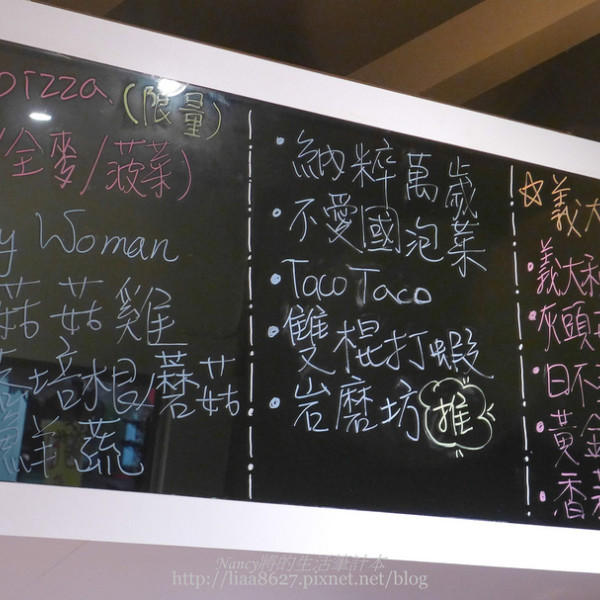 pizza (限量)
(全麥/菠菜)
y Woman
菇菇雞
培根/蘑菇
鮮蔬
•納粹萬歲
•不愛國泡菜
•Taco Taco
•雙棍打蝦
•岩磨坊 推
☆義大
•義大利
•灰頭
•日不
•黃金
•香
Nancy將的生活筆計本
http://liaa8627.pixnet.net/blog